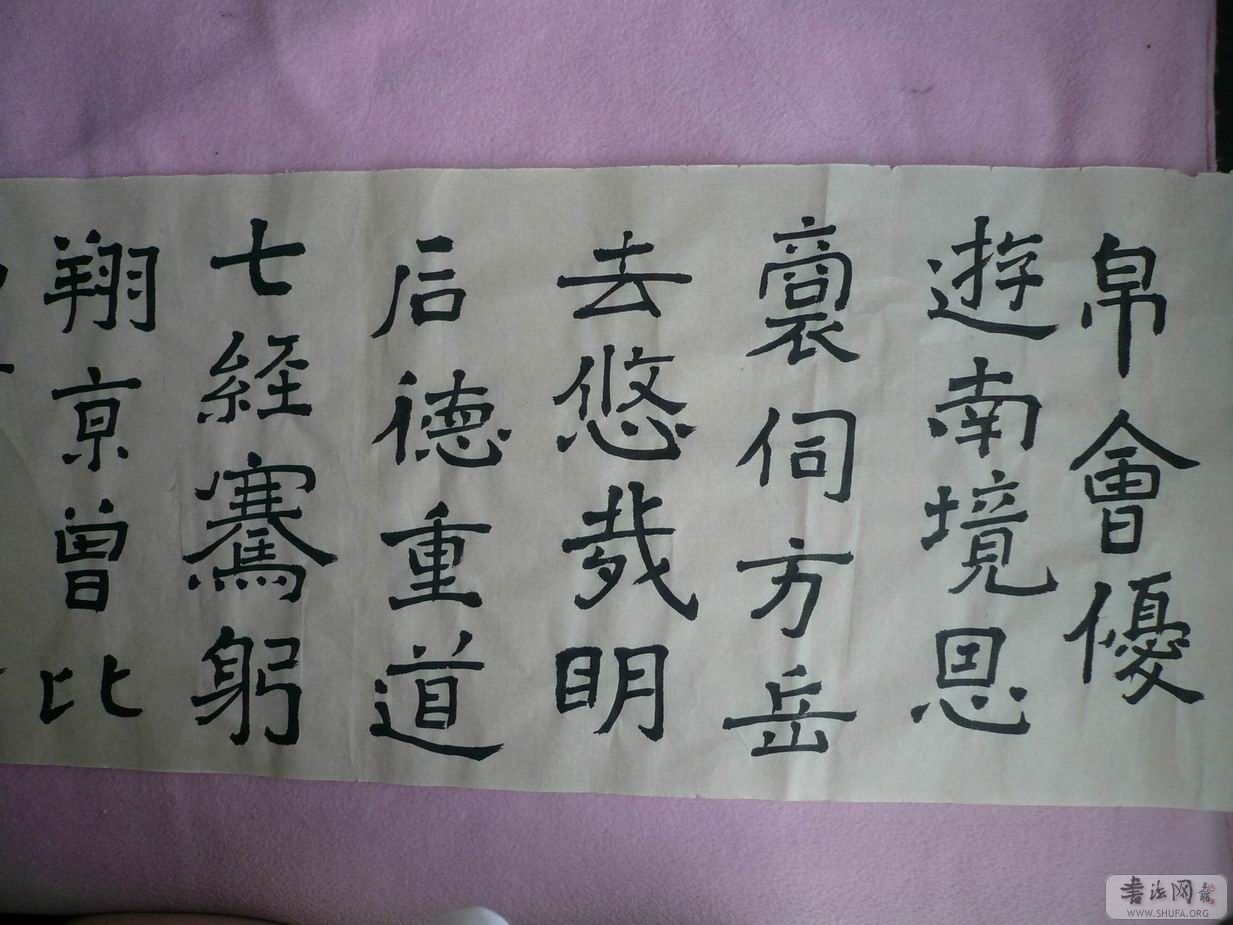 帛會優
遊南境恩
伺方岳
去悠明
后德重道
七経騫躬
翔京曽比
书法网
WWW.SHUFA.ORG